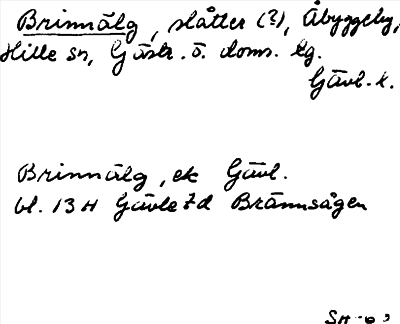 Brinnälg, slåtter (?), Åbyggeby,
Hille sn, Gästr. ö. doms. tg.
Gävl. k.
Brinnälg, ek Gävl.
bl. 13 H Gävle 7d Brännsågen